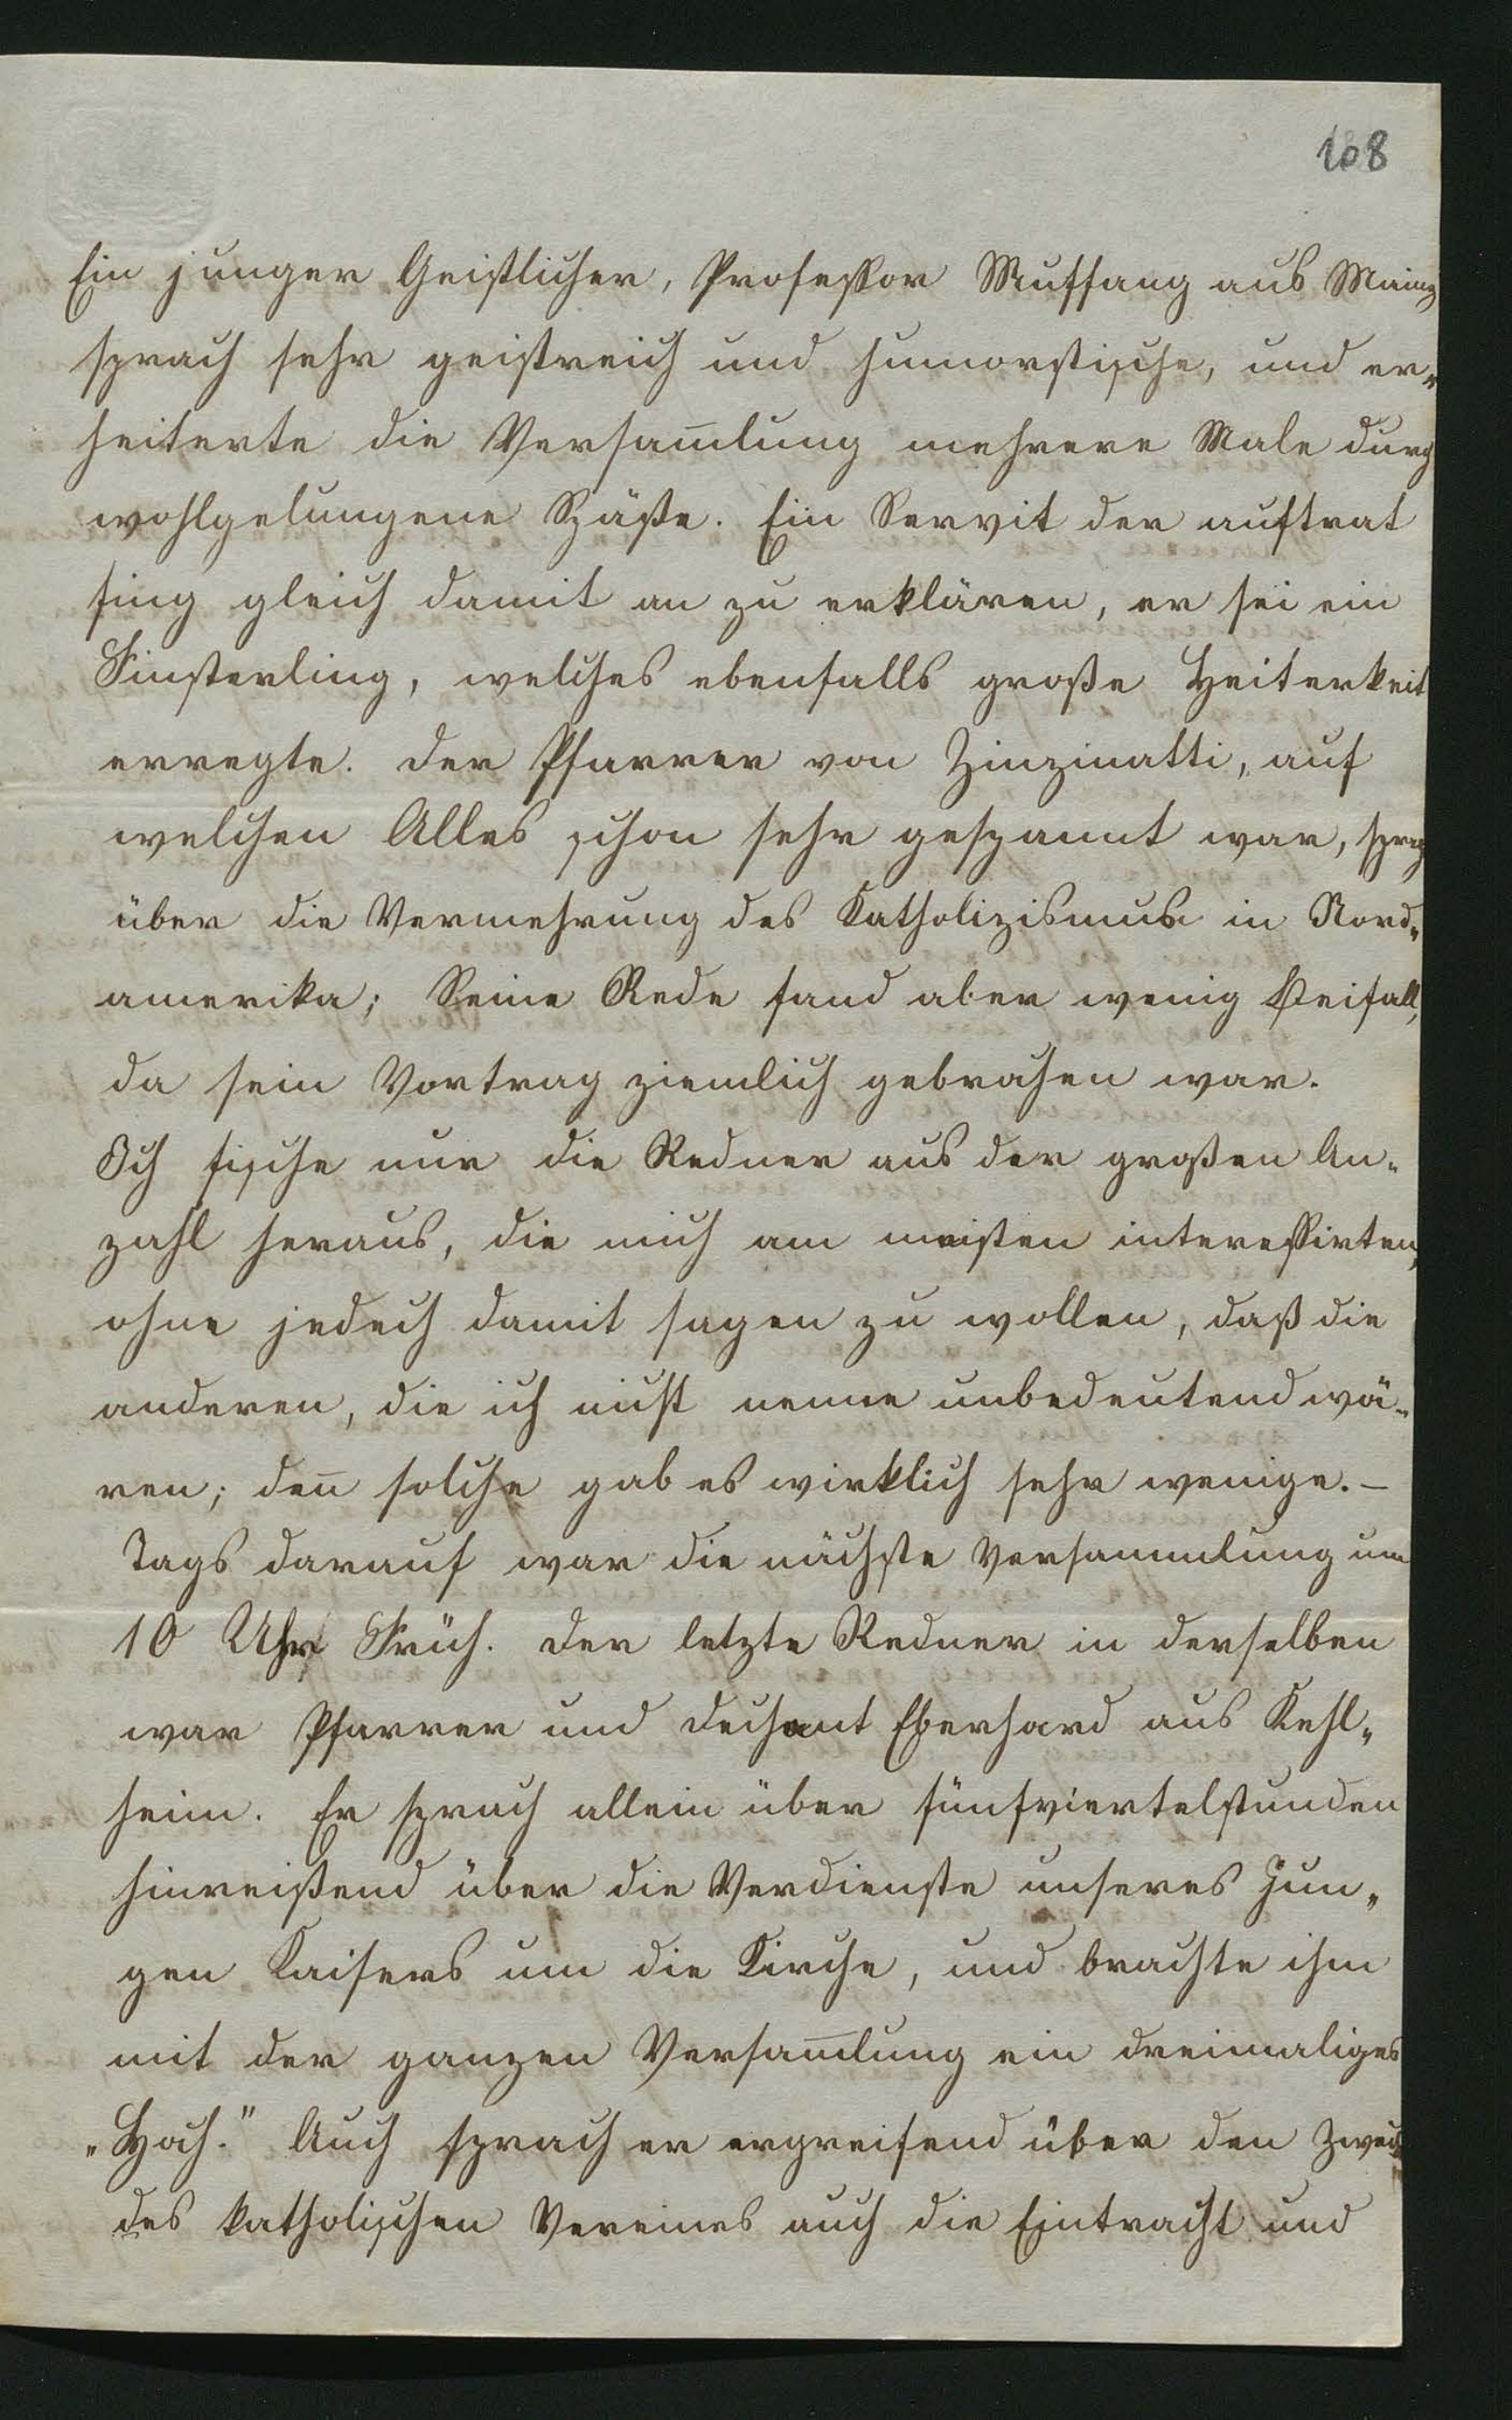 108
Ein junger Geistlicher, Professor Muffang aus Mainz
sprach sehr geistreich und humorstische, und er„
heiterte die Versam̅lung mehrere Male durch
wohlgelungene Späße. Ein Servit der auftrat
fing gleich damit an zu erklären, er sei ein
Finsterling, welches ebenfalls große Heiterkeit
erregte. Der Pfarrer von Zinzinatti, auf
welchen Alles schon sehr gespannt war, sprach
über die Vermehrung des Katholizismus in Nord„
amerika; Seine Rede fand aber wenig Beifall,
da sein Vortrag ziemlich gebrochen war.
Ich fische nur die Redner aus der großen An„
zahl heraus, die mich am meisten interessirten,
ohne jedoch damit sagen zu wollen, daß die
anderen, die ich nicht nenne unbedeutend wä„
ren; den̅ solche gab es wirklich sehr wenige. –
Tags darauf war die nächste Versammlung um
10 Uhr Früh. Der letzte Redner in derselben
war Pfarrer und Dechant Eberhard aus Kehl„
heim. Er sprach allein über fünfviertelstunden
hinreißend über die Verdienste unseres Jun„
gen Kaisers um die Kirche, und brachte ihm
mit der ganzen Versam̅lung ein dreimaliges
„Hoch.“ Auch sprach er ergreifend über den Zweck
des katholischen Vereines auch die Eintracht und